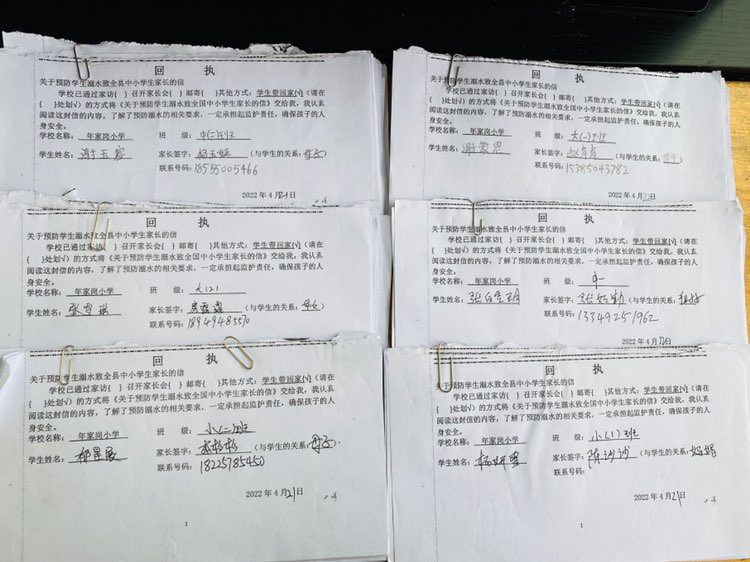 回 执
关于预防学生溺水致全县中小学生家长的信
学校已通过家访( ) 召开家长会( ) 邮寄( )其他方式：学生带回家(√)(请在
( )处划√）的方式将《关于预防学生溺水致全国中小学生家长的信》交给我，我认真
阅读这封信的内容，了解了预防溺水的相关要求，一定承担起监护责任，确保孩子的人
身安全。
学校名称： 年家岗小学 班 级：
学生姓名： 谢玉 家长签字： (与学生的关系：母子)
联系号码: 18555005466
2022 年 4 月 日
回 执
关于预防学生溺水致全县中小学生家长的信
学校已通过家访( ) 召开家长会( ) 邮寄( )其他方式：学生带回家(√)(请在
( )处划√）的方式将《关于预防学生溺水致全国中小学生家长的信》交给我，我认真
阅读这封信的内容，了解了预防溺水的相关要求，一定承担起监护责任，确保孩子的人
身安全。
学校名称： 年家岗小学 班 级： 大(一)班
学生姓名： 谢 家长签字： (与学生的关系： )
联系号码: 15385043782
2022 年 4 月 日
回 执
关于预防学生溺水致全县中小学生家长的信
学校已通过家访( ) 召开家长会( ) 邮寄( )其他方式：学生带回家(√)(请在
( )处划√）的方式将《关于预防学生溺水致全县中小学生家长的信》交给我，我认真
阅读这封信的内容，了解了预防溺水的相关要求，一定承担起监护责任，确保孩子的人
身安全。
学校名称： 年家岗小学 班 级： 大(2)
学生姓名： 张雪 家长签字： (与学生的关系： )
联系号码: 18949485570
2022 年 4 月 日
回 执
关于预防学生溺水致全县中小学生家长的信
学校已通过家访( ) 召开家长会( ) 邮寄( )其他方式：学生带回家(√)(请在
( )处划√）的方式将《关于预防学生溺水致全县中小学生家长的信》交给我，我认真
阅读这封信的内容，了解了预防溺水的相关要求，一定承担起监护责任，确保孩子的人
身安全。
学校名称： 年家岗小学 班 级： 中一
学生姓名： 张 家长签字： (与学生的关系： )
联系号码: 13349251962
2022 年 4 月 日
回 执
关于预防学生溺水致全县中小学生家长的信
学校已通过家访( ) 召开家长会( ) 邮寄( )其他方式：学生带回家(√)(请在
( )处划√）的方式将《关于预防学生溺水致全县中小学生家长的信》交给我，我认真
阅读这封信的内容，了解了预防溺水的相关要求，一定承担起监护责任，确保孩子的人
身安全。
学校名称： 年家岗小学 班 级： 小(二)班
学生姓名： 家长签字： (与学生的关系：母子)
联系号码: 18225785450
2022 年 4 月 21 日
1
回 执
关于预防学生溺水致全县中小学生家长的信
学校已通过家访( ) 召开家长会( ) 邮寄( )其他方式：学生带回家(√)(请在
( )处划√）的方式将《关于预防学生溺水致全县中小学生家长的信》交给我，我认真
阅读这封信的内容，了解了预防溺水的相关要求，一定承担起监护责任，确保孩子的人
身安全。
学校名称： 年家岗小学 班 级： 小(1)班
学生姓名： 杨妍 家长签字： 陈沙沙 (与学生的关系： )
联系号码:
2022 年 4 月 21 日
1